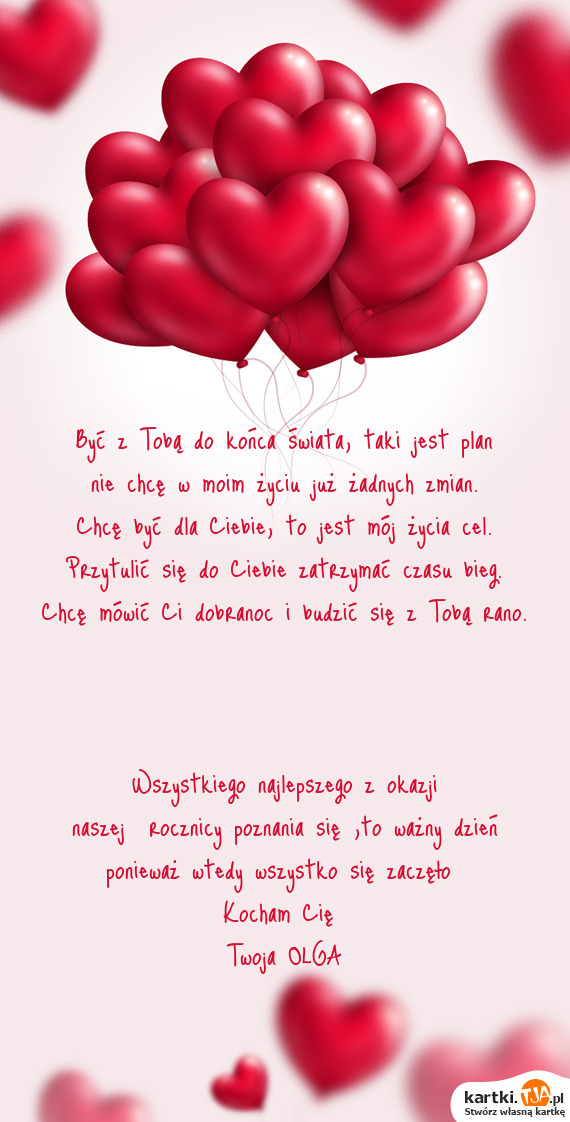 Być z Tobą do końca świata, taki jest plan
nie chcę w moim życiu już żadnych zmian.
Chcę być dla Ciebie, to jest mój życia cel.
Przytulić się do Ciebie zatrzymać czasu bieg.
Chcę mówić Ci dobranoc i budzić się z Tobą rano.
Wszystkiego najlepszego z okazji
naszej rocznicy poznania się ,to ważny dzień
ponieważ wtedy wszystko się zaczęto
Kocham Cię
Twoja OLGA
kartki.TJA.pl
Stwórz własną kartkę